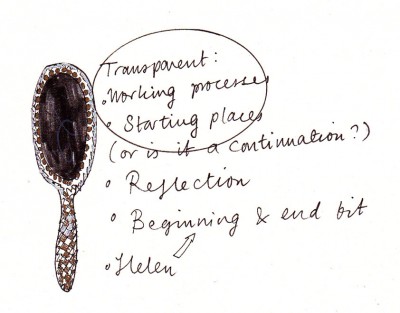 Transparent:
• Working processes
• Starting places
(or is it a continuation?)
• Reflection
• Beginning & end bit
• Helen